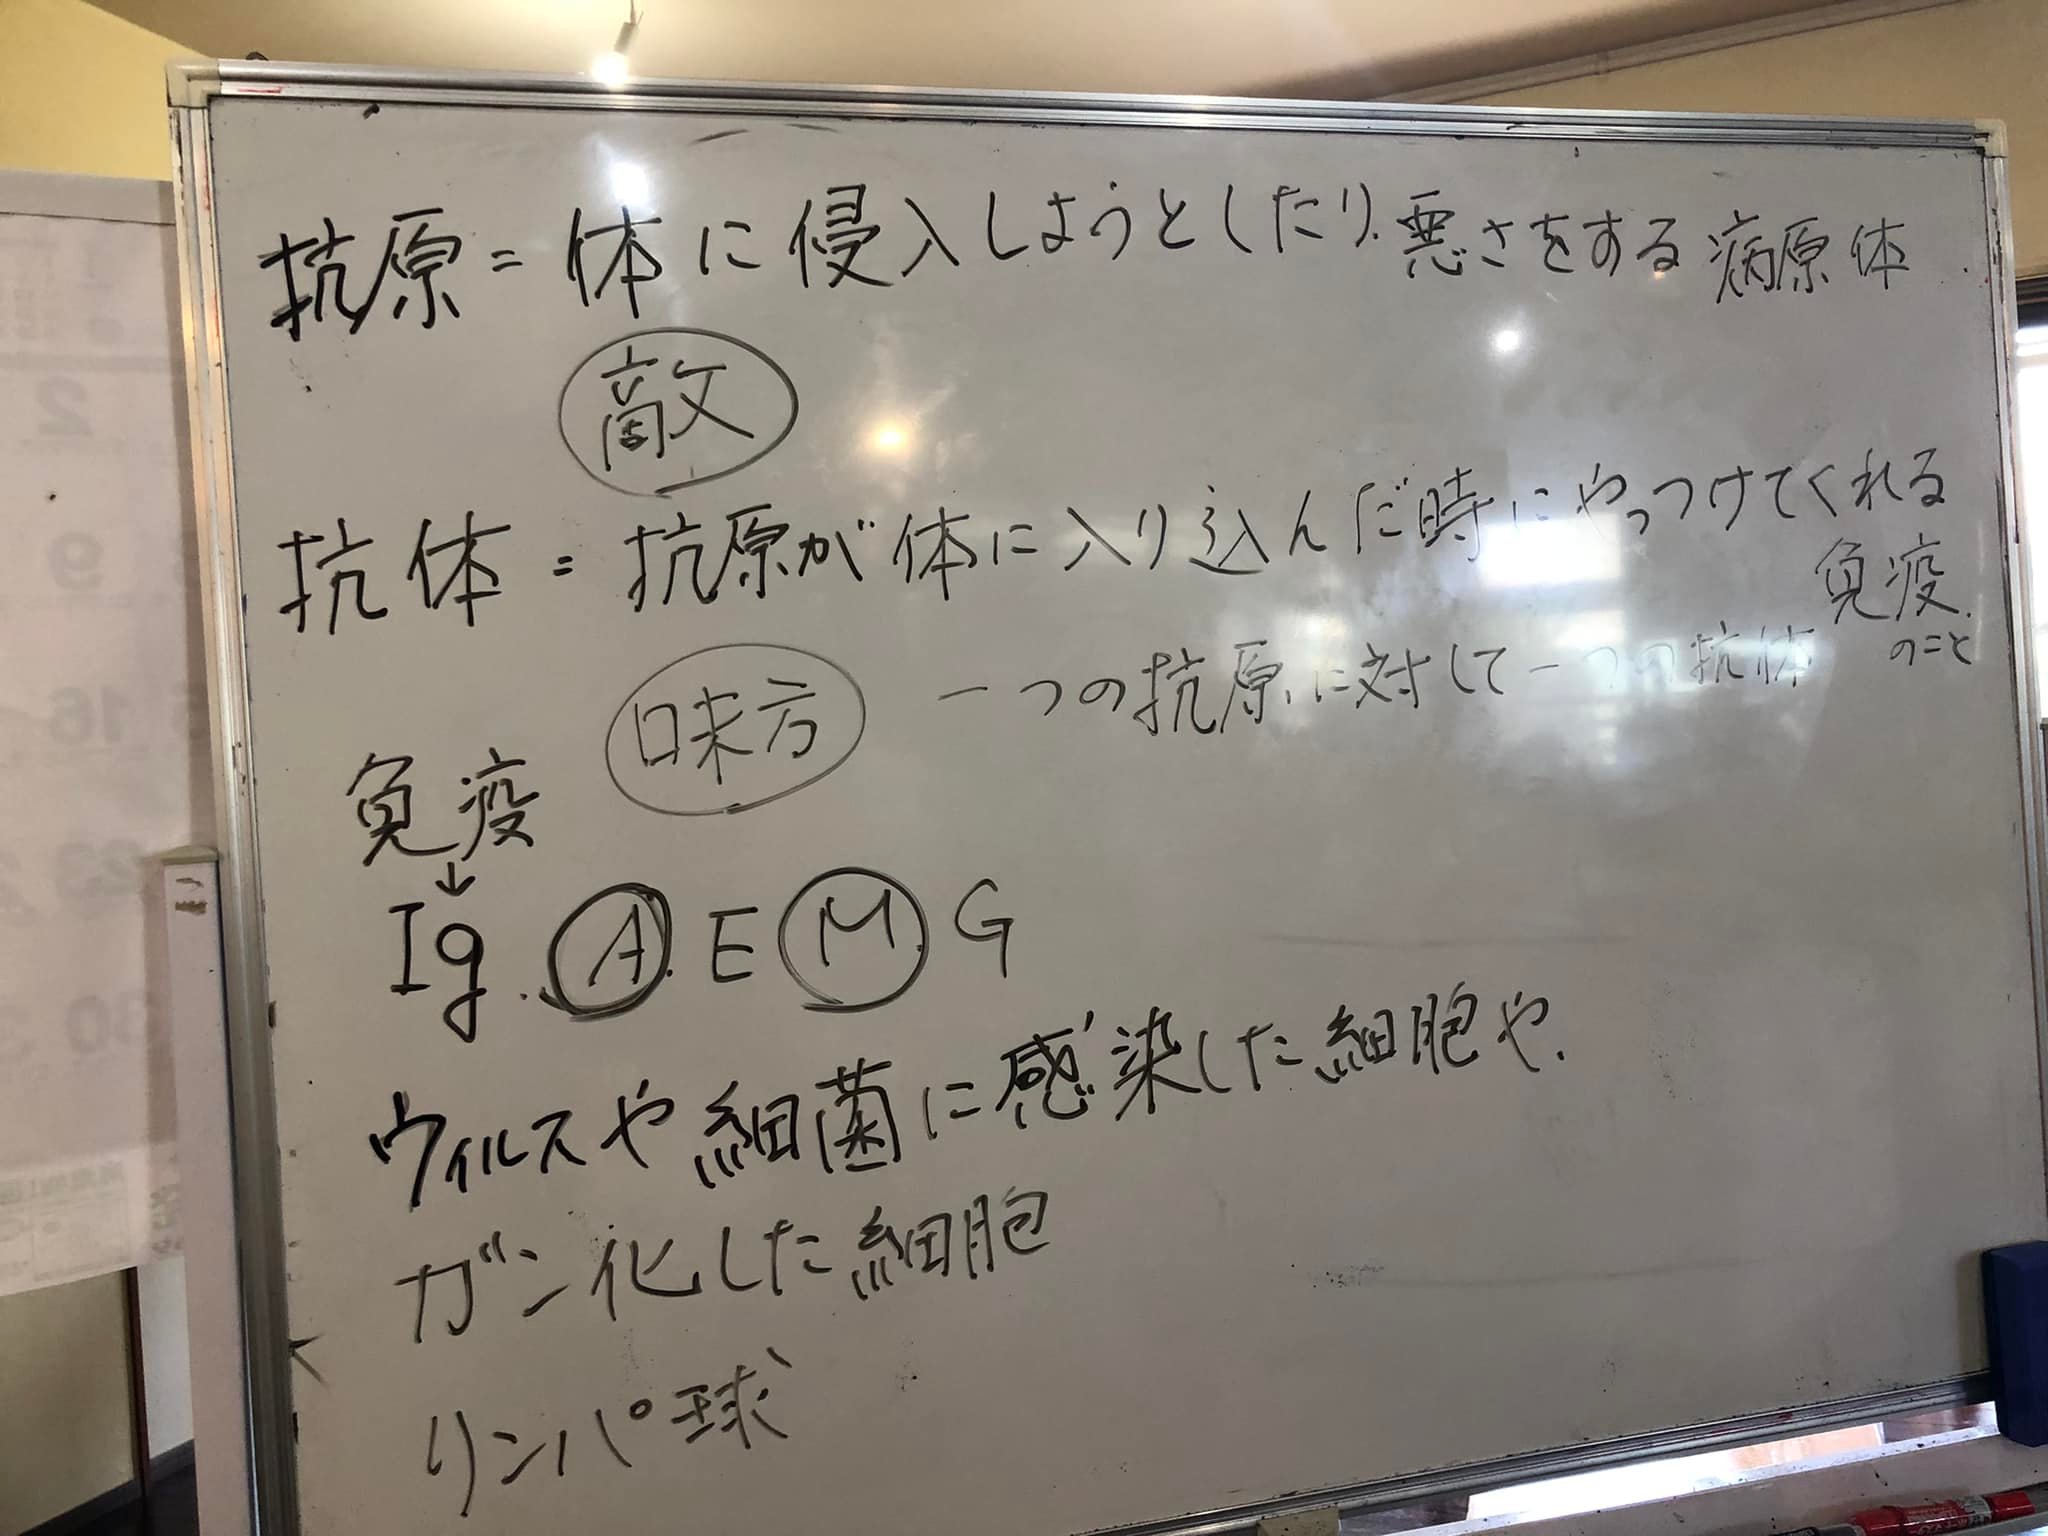 抗原=体に侵入しようとしたり悪さをする病原体
敵
抗体=抗原が体に入り込んだ時にやっつけてくれる
免疫
のこと
味方
一つの抗原に対して一つの抗体
免疫
↓
Ig. A. E M. G
ウィルスや細菌に感染した細胞や.
ガン化した細胞
リンパ球
2
9
16
23
30